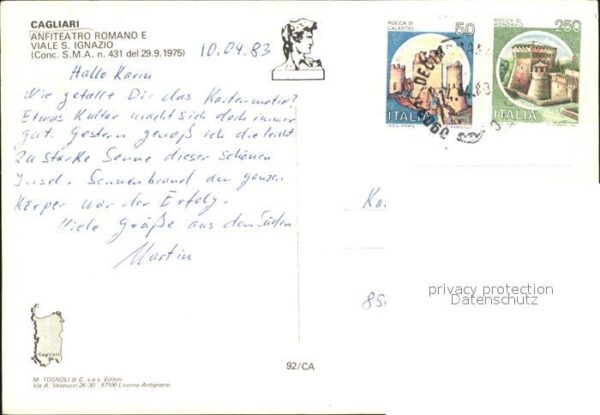 CAGLIARI
ANFITEATRO ROMANO E
VIALE S. IGNAZIO
(Conc. S.M.A. n. 431 del 29.9.1975)
10.04.83
Hallo Karin
Wie gefällt Dir das Kartenmotiv?
Etwas Kultur macht sich doch immer
gut. Gestern genoß ich die leicht
zu starke Sonne dieser schönen
Insel. Sonnenbrand am ganzen
Körper war der Erfolg.
Viele Grüße aus dem Süden
Martin
ROCCA DI
CALASCIO
50
ITALIA
ROCCA DI
MONDAVIO
250
ITALIA
09033 DECIM
Ka
85
privacy protection
Datenschutz
Cagliari
92/CA
M. TOGNOLI & C. s.a.s. Editori
Via A. Vespucci 26-30 - 57100 Livorno Ardignano